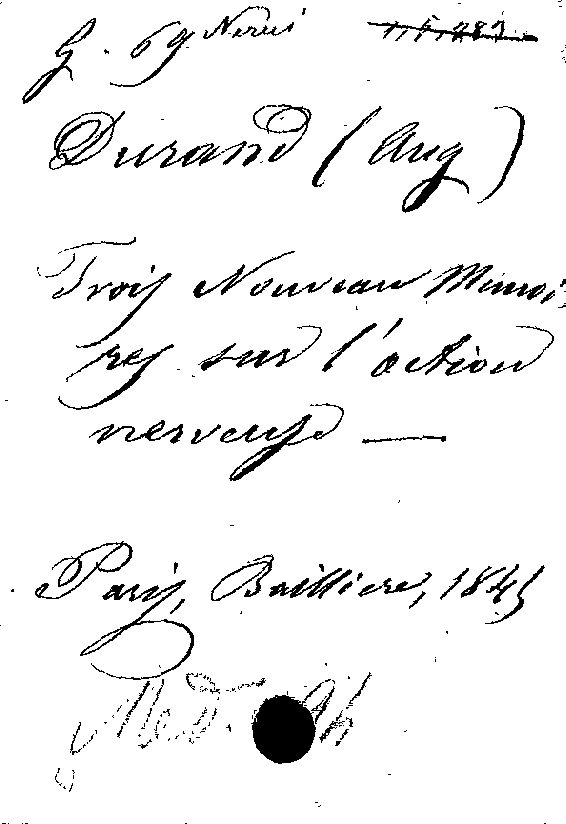 G. 69 Nerui
Durand (Aug)
Trois Nouveau Mémoi
res sur l'action
nerveuse —
Paris, Baillière, 1845
Med.